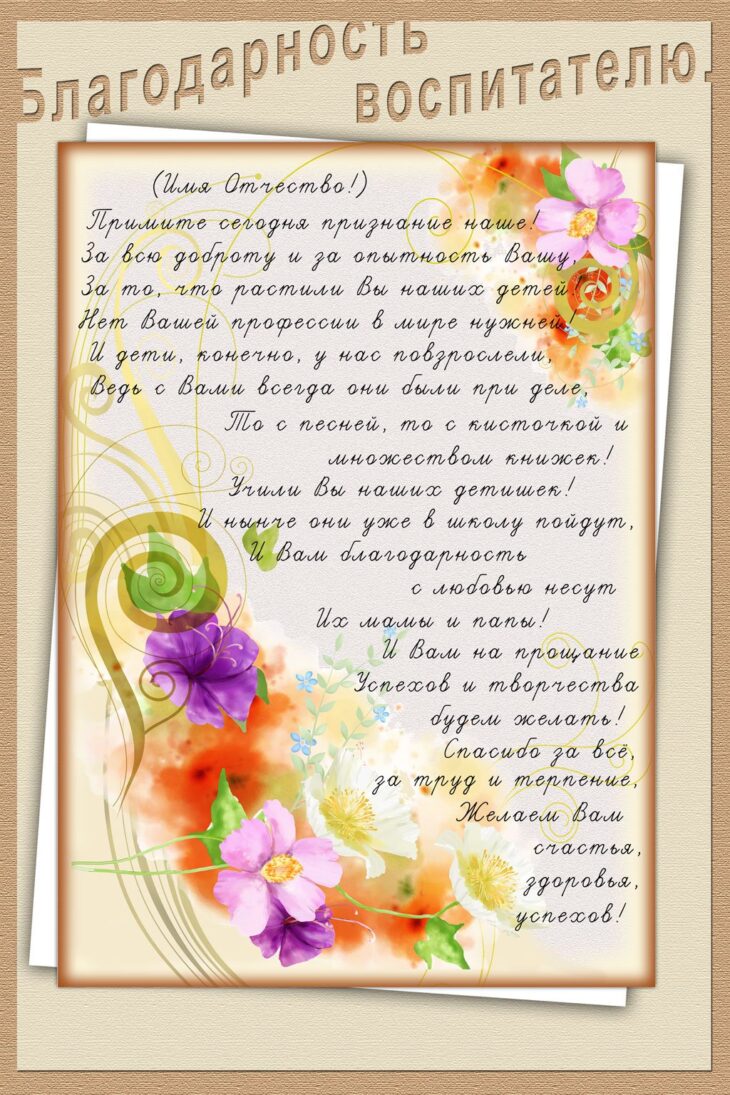 Благодарность
воспитателю.
(Имя Отчество!)
Примите сегодня признание наше!
За всю доброту и за опытность Вашу,
За то, что растили Вы наших детей!
Нет Вашей профессии в мире нужней!
И дети, конечно, у нас повзрослели,
Ведь с Вами всегда они были при деле,
То с песней, то с кисточкой и
множеством книжек!
Учили Вы наших детишек!
И нынче они уже в школу пойдут,
И Вам благодарность
с любовью несут
Их мамы и папы!
И Вам на прощание
Успехов и творчества
будем желать!
Спасибо за всё,
за труд и терпение,
Желаем Вам
счастья,
здоровья,
успехов!